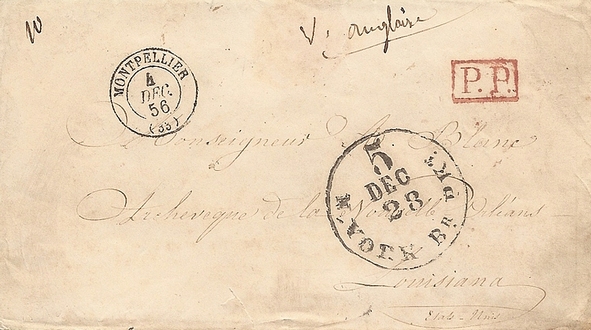 10
V. anglaise
MONTPELLIER
4
DEC.
56
(33)
P.P.
A Monseigneur A. Blanc
Archevêque de la Nouvelle Orléans
Louisiana
Etats-Unis
5
DEC
23
N. YORK BR. PKT